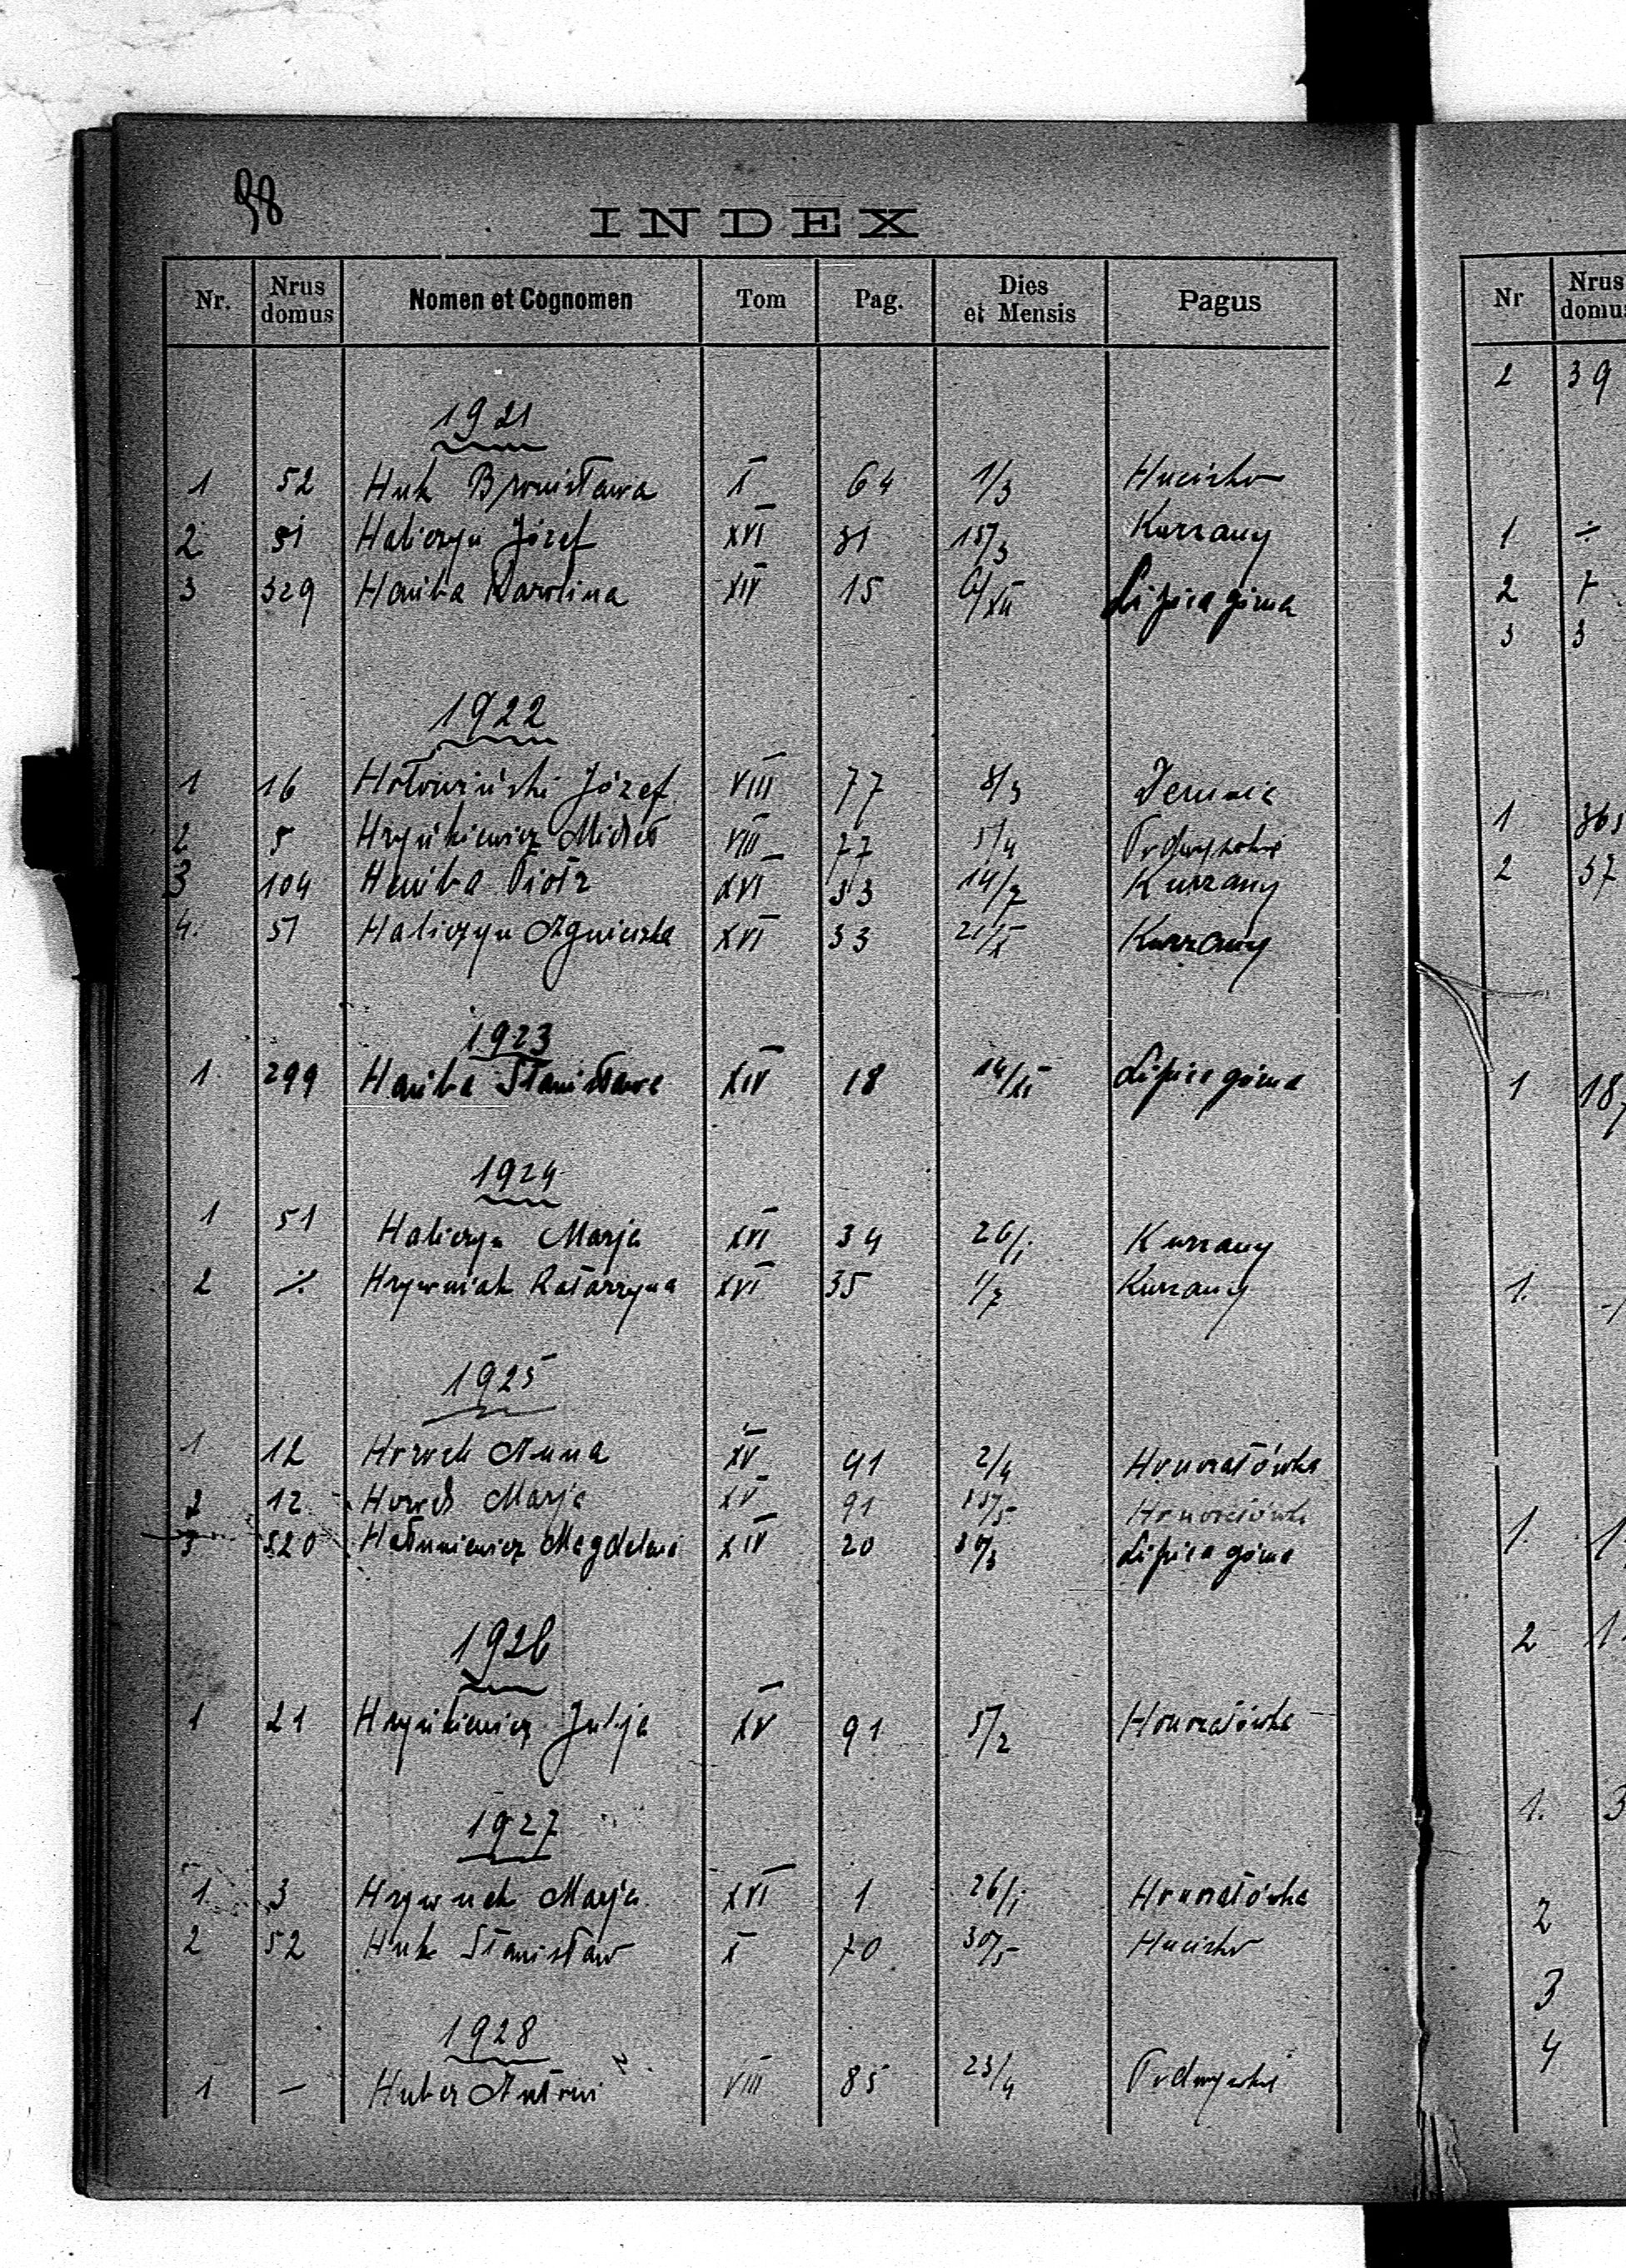 98
INDEX
Nr. Nrus domus Nomen et Cognomen Tom Pag. Dies et Mensis Pagus
1921
1 52 Huk Bronisława X 64 1/3 Hucisko
2 51 Haliczyn Józef XVI 31 15/3 Kurzany
3 329 Hańba Karolina XIV 15 6/XII Lipica górna
1922
1 16 Hołowiński Józef VIII 77 8/3 Demnia
2 5 Hryńkiewicz Michał VIII 77 5/4 Podwysokie
3 104 Hańba Piotr XVI 33 14/7 Kurzany
4. 51 Haliczyn Agnieszka XVI 33 21/X Kurzany
1923
1. 299 Hańba Stanisława XIV 18 Lipica górna
1924
1 51 Haliczyn Marja XVI 34 26/1 Kurzany
2 ·/. Hrywniak Katarzyna XVI 35 1/7 Kurzany
1925
1 12 Horoch Anna XV 91 2/4 Honoratówka
2 12 Marja XV 91 15/5 Honoratówka
3 320 Magdalena XIV 20 30/3 Lipica górna
1926
1 21 Hryńkiewicz Julja XV 91 5/2 Honoratówka
1927
1. 3 Marja XVI 1 26/1 Honoratówka
2 52 Huk Stanisław X 70 30/5 Hucisko
1928
1 — Huber Antoni VIII 85 23/4 Podwysokie
Nr Nrus domus
2 39
1 ÷
2
3 3
1
2 37
1 18
1.
1. 1
2 1
1. 3
2
3
4